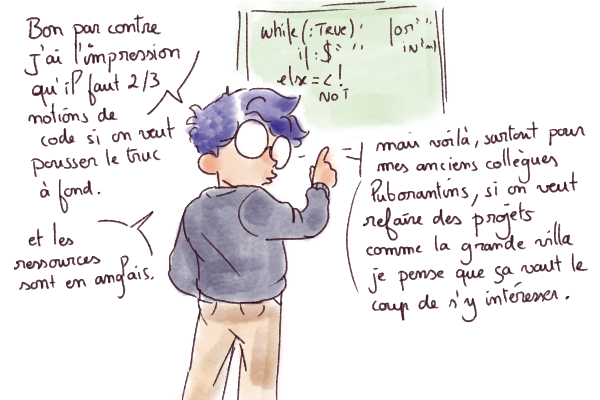 Bon par contre
j'ai l'impression
qu'il faut 2/3
notions de
code si on veut
pousser le truc
à fond.
et les
ressources
sont en anglais.
while(:True)
if:$
else=<!
NOT
mais voilà, surtout pour
mes anciens collègues
Puborantins, si on veut
refaire des projets
comme la grande villa
je pense que ça vaut le
coup de s'y intéresser.